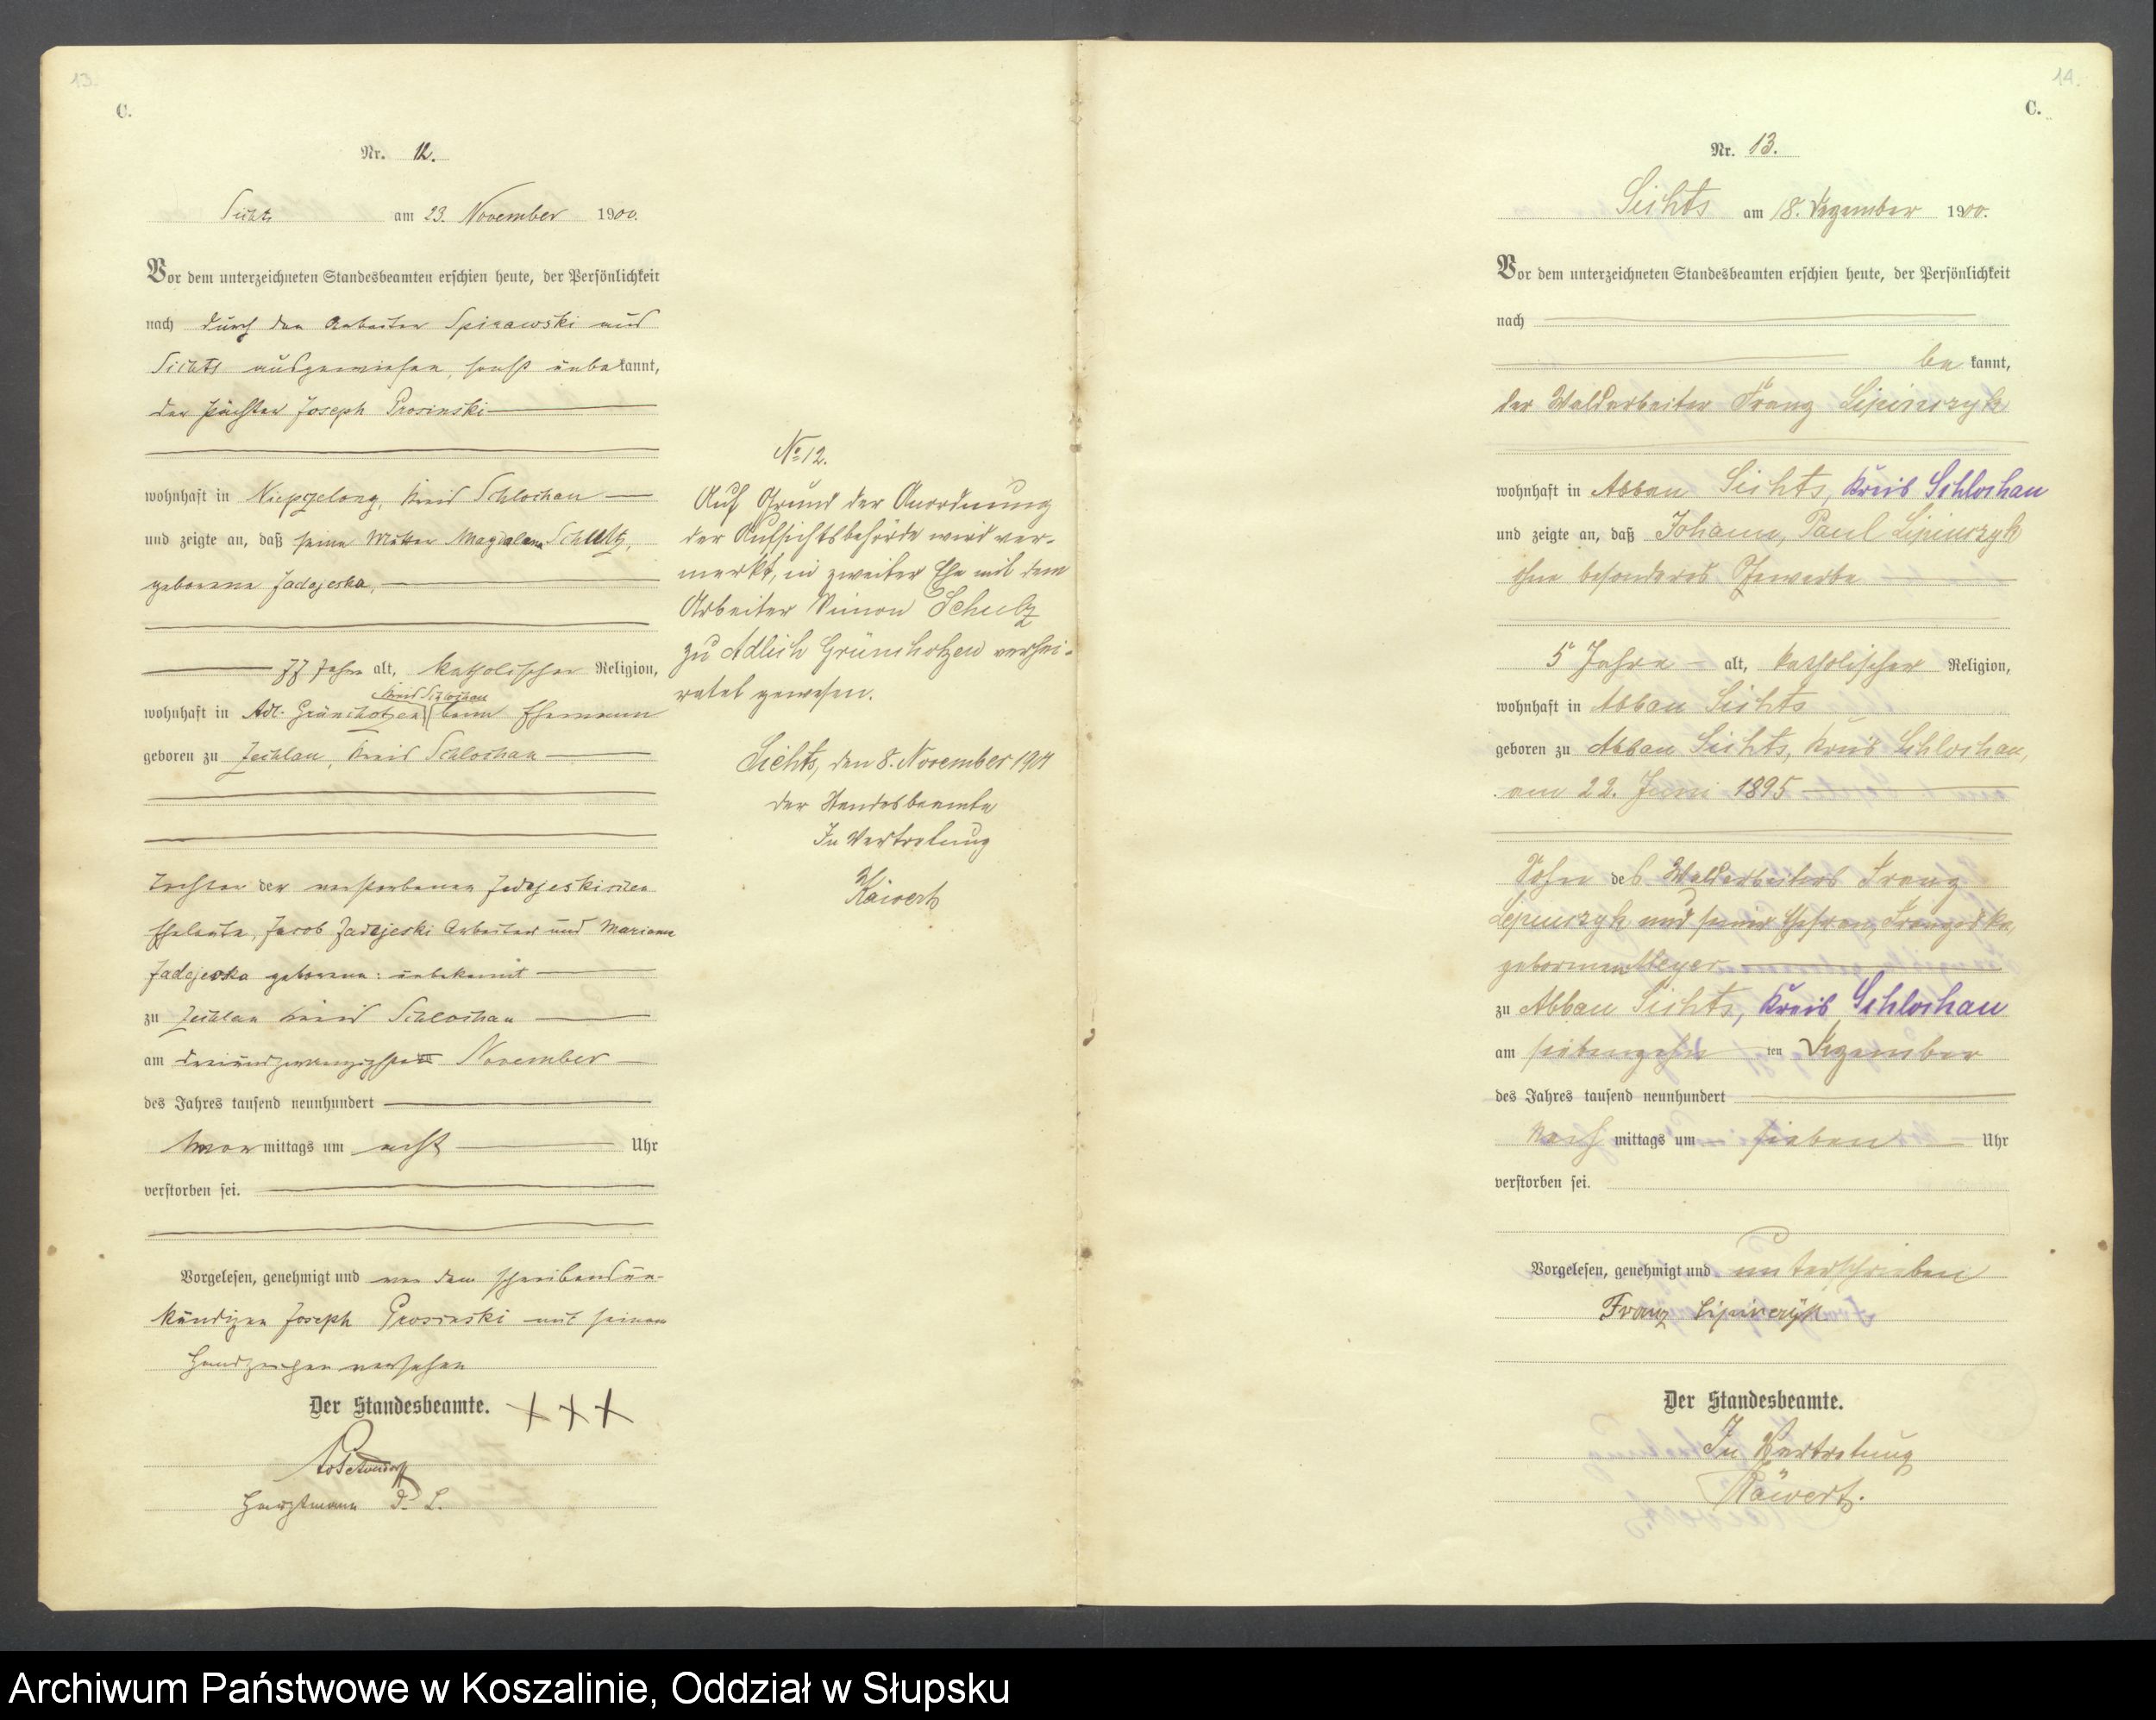 13.
C.
Nr. 12.
Sichts am 23. November 1900.
Vor dem unterzeichneten Standesbeamten erschien heute, der Persönlichkeit
nach durch den Arbeiter Spirawski aus
Sichts ausgewiesen, sonst unbekannt,
der Pächter Joseph Prosinski
wohnhaft in Niepszelong, Kreis Schlochau
und zeigte an, daß seine Mutter Magdalena Schultz,
geborene Jadajeska,
77 Jahre alt, katholischer Religion,
Kreis Schlochau
wohnhaft in Adl. Grünchotzen beim Ehemann
geboren zu Zechlau, Kreis Schlochau
Tochter der verstorbenen
Eheleute, Jacob Jadajeski Arbeiter und Marianna
Jadajeska geborene: unbekannt
zu Zechlau Kreis Schlochau
am dreiundzwanzigsten November
des Jahres tausend neunhundert
Vormittags um acht Uhr
verstorben sei.
Vorgelesen, genehmigt und von dem schreibensun-
kundigen Joseph Prosinski mit seinem
Handzeichen versehen
Der Standesbeamte. +++
No 12.
Auf Grund der Anordnung
der Aufsichtsbehörde wird ver-
merkt, in zweiter Ehe mit dem
Arbeiter Simon Schulz
zu Adlich Grünchotzen verhei-
ratet gewesen.
Sichts, den 8. November 1901
der Standesbeamte
In Vertretung
Räwert
14.
C.
Nr. 13.
Sichts am 18. Dezember 1900.
Vor dem unterzeichneten Standesbeamten erschien heute, der Persönlichkeit
nach
bekannt,
der Waldarbeiter Franz Lipinczyk
wohnhaft in Abbau Sichts, Kreis Schlochau
und zeigte an, daß Johann, Paul Lipinczyk
ohne besonderes Gewerbe
5 Jahre alt, katholischer Religion,
wohnhaft in Abbau Sichts
geboren zu Abbau Sichts, Kreis Schlochau,
am 22. Juni 1895
Sohn des Waldarbeiters Franz
Lepinczyk und seiner Ehefrau, Franziska,
geborenen Meyer
zu Abbau Sichts, Kreis Schlochau
am siebenzehnten Dezember
des Jahres tausend neunhundert
Nachmittags um sieben Uhr
verstorben sei.
Vorgelesen, genehmigt und unterschrieben
Franz Lipinczyk
Der Standesbeamte.
In Vertretung
Räwert.
Archiwum Państwowe w Koszalinie, Oddział w Słupsku